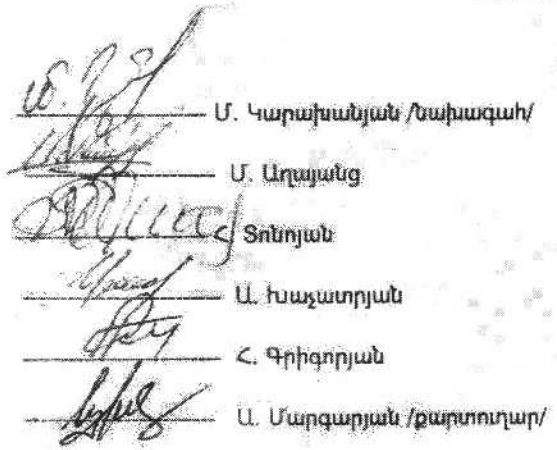 Մ. Կարախանյան /նախագահ/
Մ. Աղայանց
Հ. Տոնոյան
Ա. Խաչատրյան
Հ. Գրիգորյան
Ա. Մարգարյան /քարտուղար/